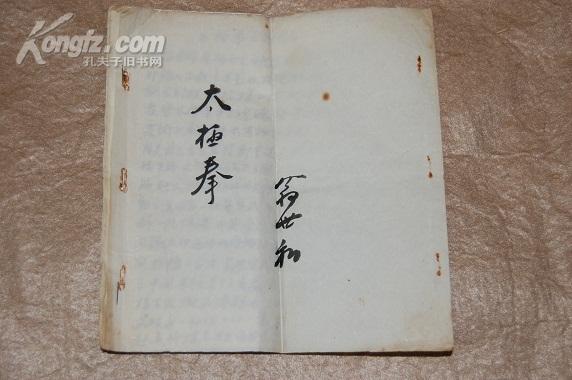 Kongfz.com
孔夫子旧书网
太极拳
翁世和